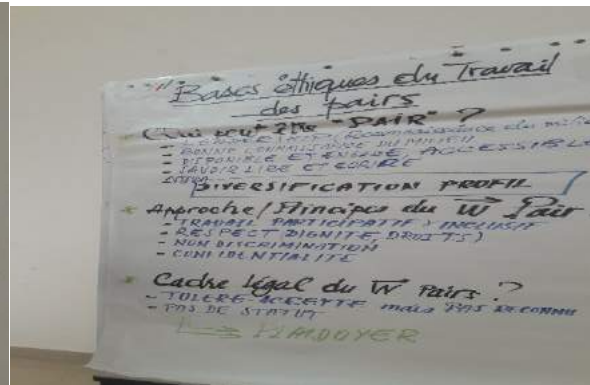 Bases éthiques du Travail
des pairs
* Qui peut être "PAIR" ?
- (Reconnaissance du milieu
- BONNE CONNAISSANCE DU MILIEU
- DISPONIBLE ET ENGAGE, ACCESSIBLE
- SAVOIR LIRE ET ECRIRE
DIVERSIFICATION PROFIL
* Approche/Principes du W Pair
- TRAVAIL PARTICIPATIF, INCLUSIF
- RESPECT DIGNITE, DROITS)
- NON DISCRIMINATION
- CONFIDENTIALITE
* Cadre légal du W Pairs ?
- TOLERE-ACCEPTE mais PAS RECONNU
- PAS DE STATUT
PLAIDOYER